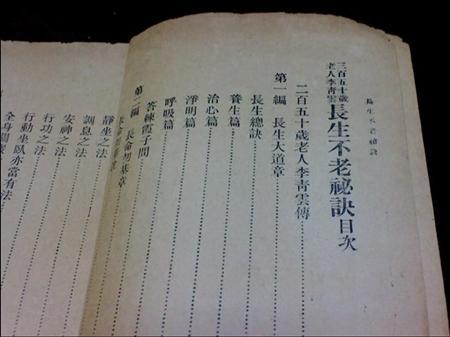 長生不老祕訣
二百五十歲老人李青雲長生不老祕訣目次
二百五十歲老人李青雲傳
第一編 長生大道章
長生總訣
養生篇
治心篇
淨明篇
呼吸篇
答棟霞子問
第二編 長命初基章
靜坐之法
調息之法
安神之法
行功之法
行動坐臥亦當有法
全身關